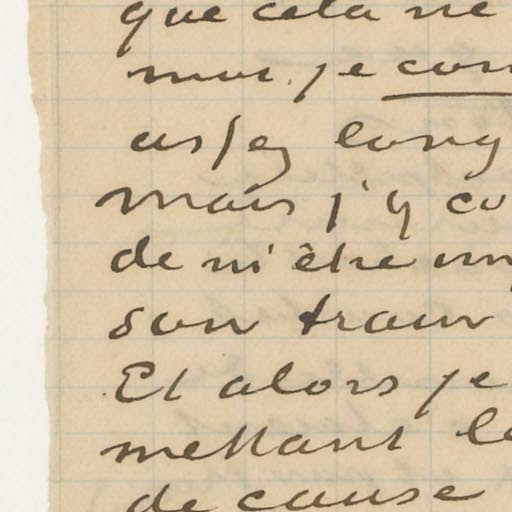 que cela ne
mur. je con
assez long
mais j'y co
de m'être im
son train
Et alors je
mettant le
de cause